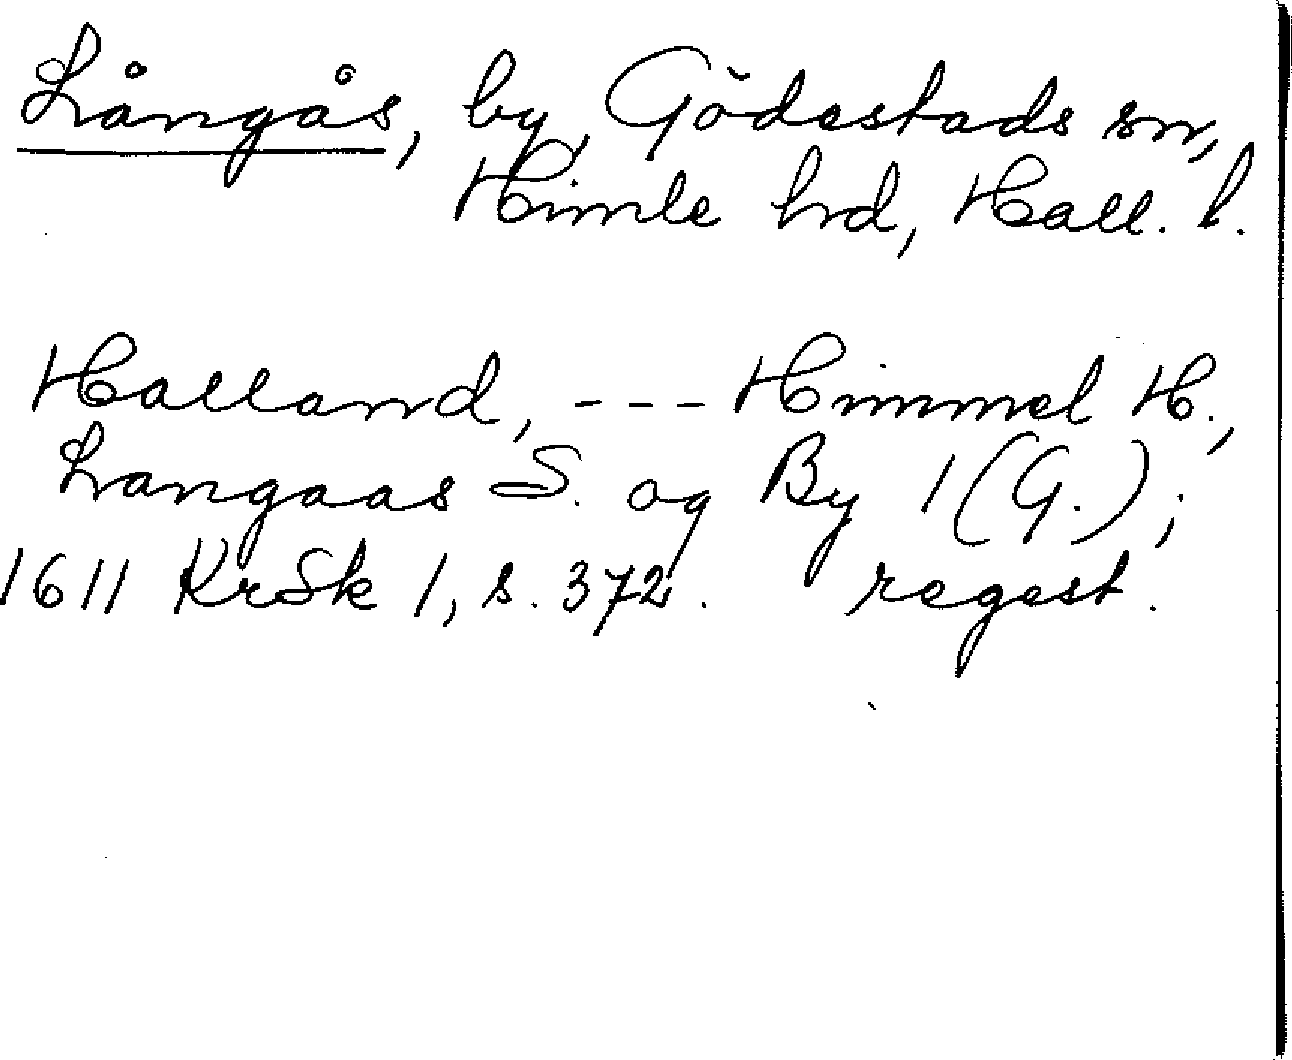 Långås, by, Gödestads sn,
Himle hrd, Hall. l.
Halland, --- Himmel H.,
Langaas S. og By 1 (G.);
1611 KrSk 1, s. 372. regest.